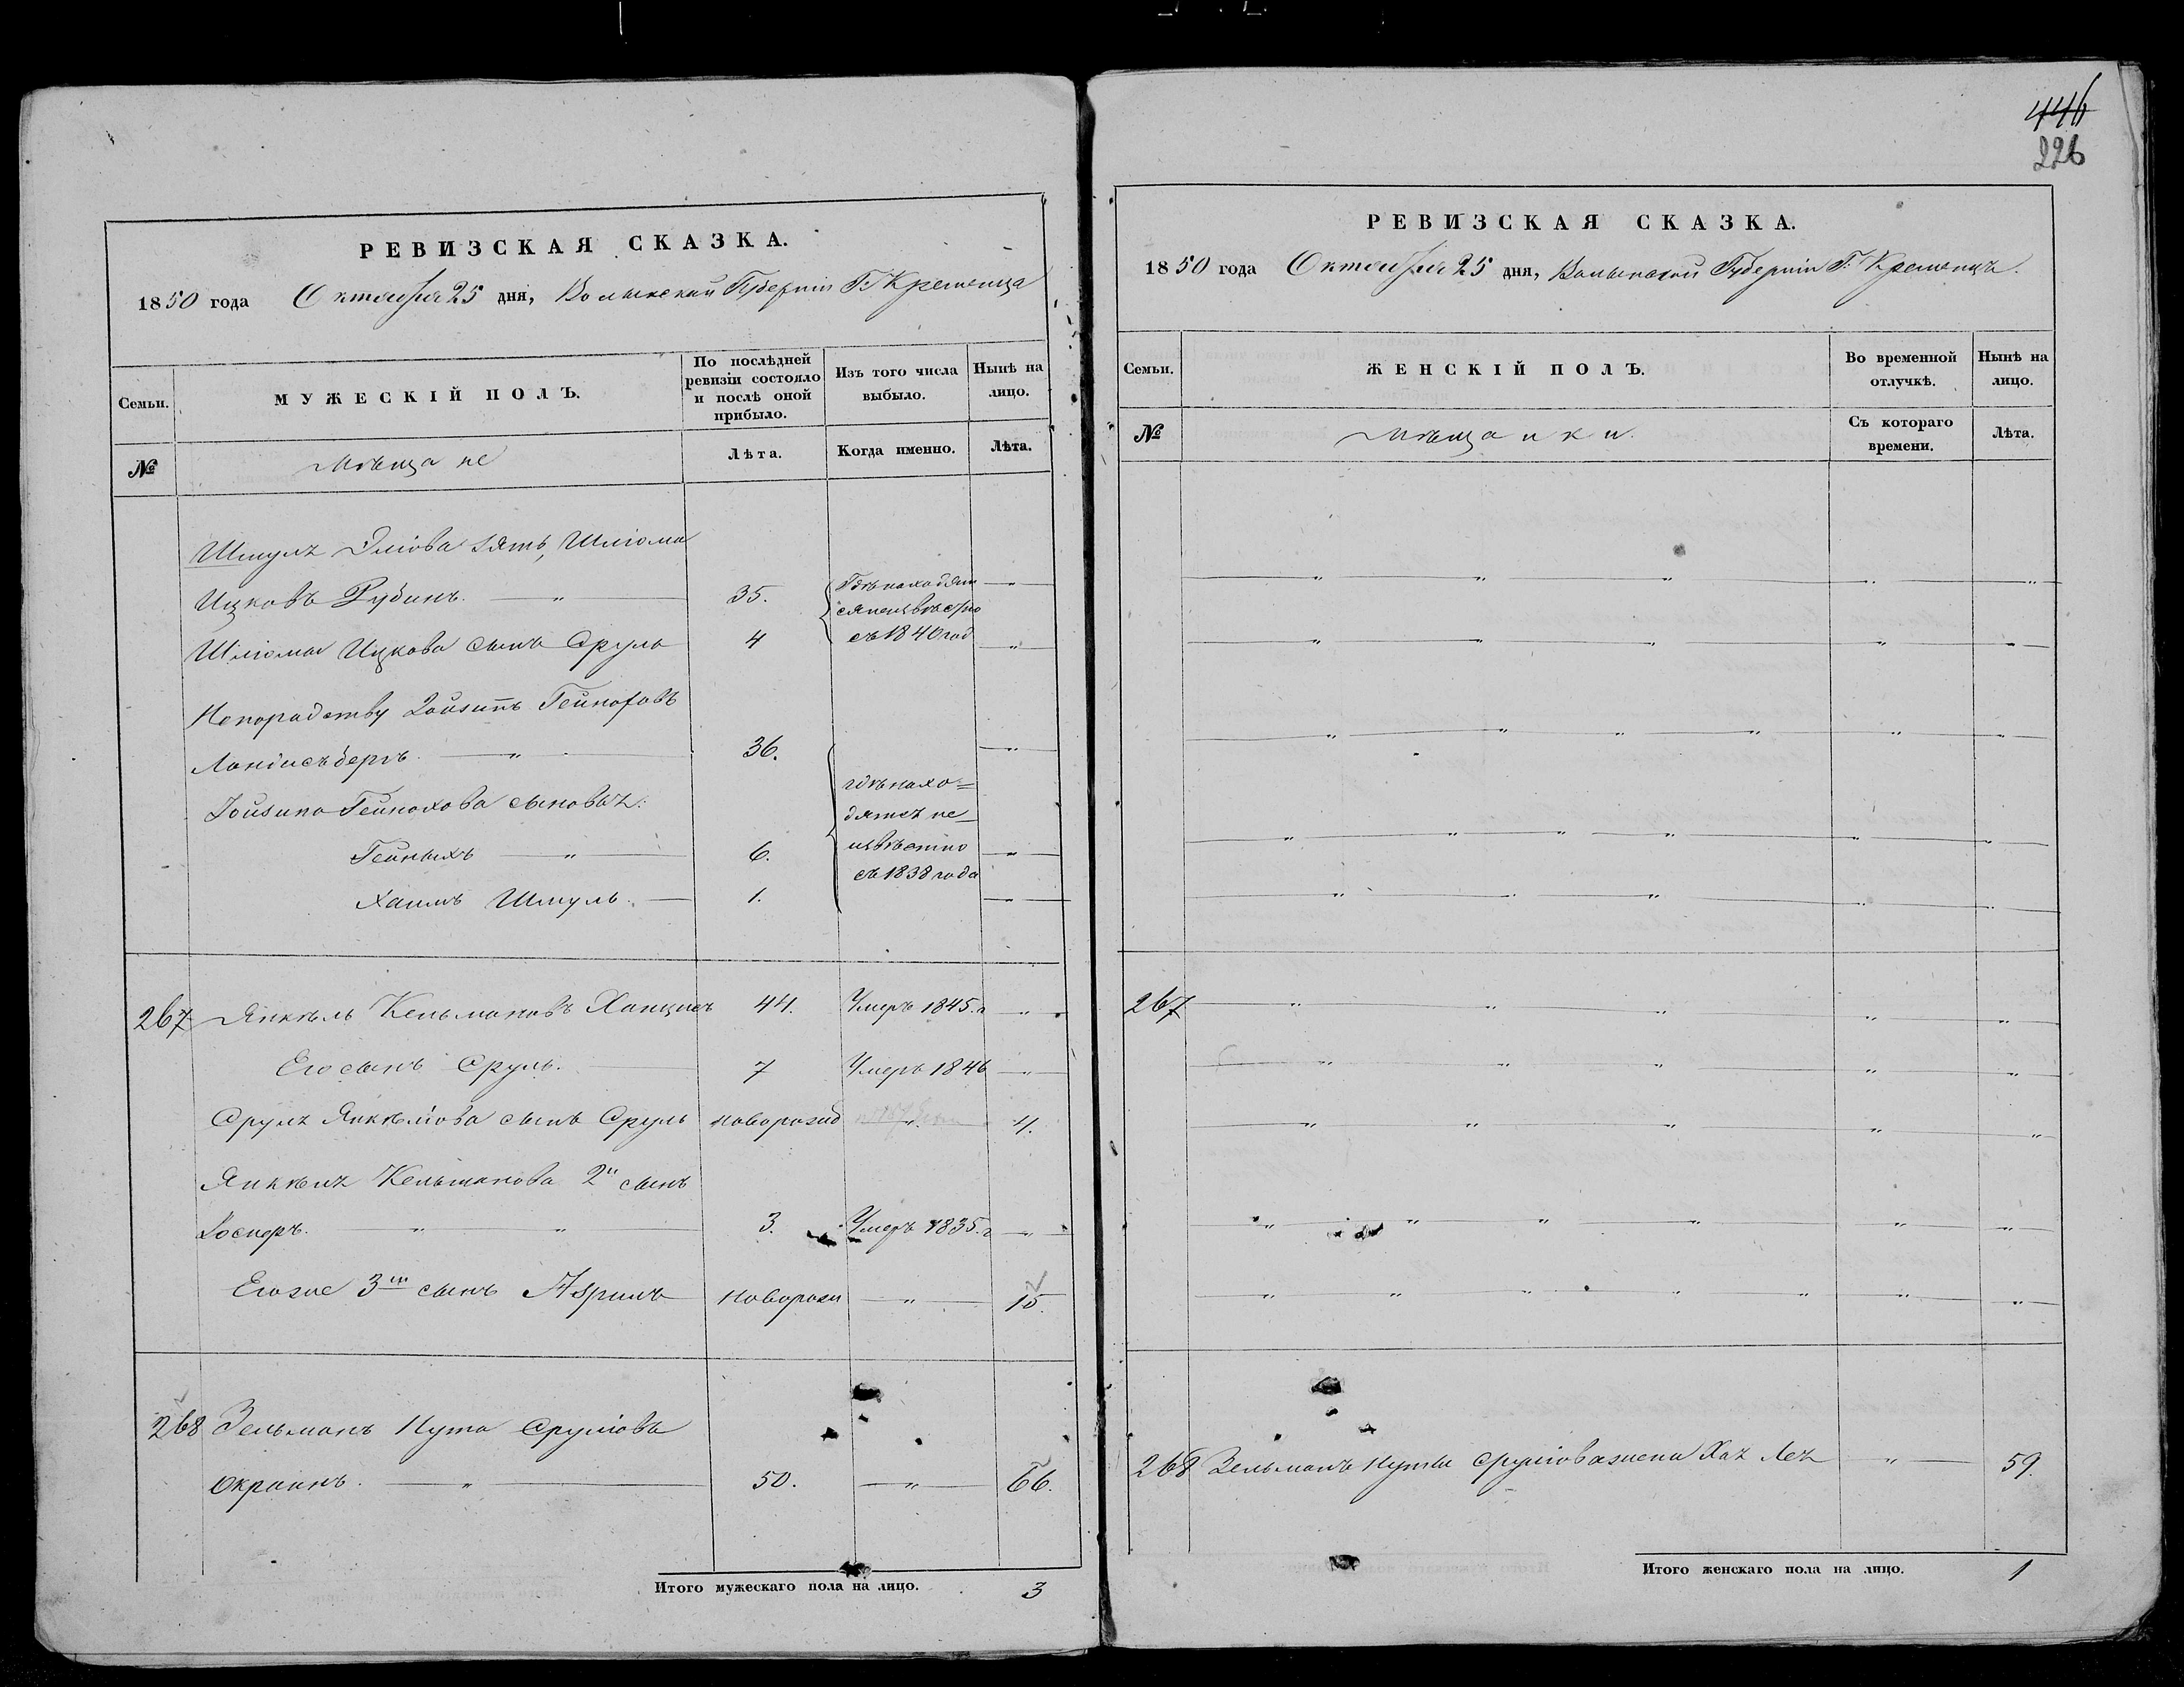 446
226
РЕВИЗСКАЯ СКАЗКА.
1850 года Октября 25 дня, Волынской Губернiи Г. Кременца
Семьи.
МУЖЕСКIЙ ПОЛЪ.
По послѣдней ревизiи состояло и послѣ оной прибыло.
Изъ того числа выбыло.
Нынѣ на лицо.
№
Мѣщане
Лѣта.
Когда именно.
Лѣта.
Шмуля Элiова зять, Шлiома
Ицковъ Рубинъ. — " — 35. Гдѣ находят
ся неизвѣстно
Шлiома Ицкова сынъ Сруль 4 съ 1840 год — " —
Непорадству Iойзипъ Гейноховъ
Ландисъбергъ. — " — 36. — " —
Iойзипа Гейнохова сыновья: гдѣ нахо=
дятся не
Гейныхъ — " — 6. извѣстно — " —
съ 1838 года
Хаимъ Шмуль. — 1. — " —
267 Янкель Кельмановъ 44. Умеръ 1845. г "
Его сынъ Сруль. 7 Умеръ 1846 — " —
Сруля Янкелiова сынъ Сруль новорожд " 4.
Янкеля Кельманова 2й сынъ
Iосперъ. — " — " — 3. Умеръ 1835. г — " —
Его же 3ий сынъ Азрилъ новорожд — " — 15.
268 Зельманъ Нута Срулiовъ
Окраинъ. — " — 50. — " — 66.
Итого мужескаго пола на лицо. 3
РЕВИЗСКАЯ СКАЗКА.
1850 года Октября 25 дня, Волынской Губернiи Г. Кременцъ.
Семьи.
ЖЕНСКIЙ ПОЛЪ.
Во временной отлучкѣ.
Нынѣ на лицо.
№
Мѣщанки.
Съ котораго времени.
Лѣта.
267
268 Зельмана Нуты Срулiова жена Хая Лея — " — 59.
Итого женскаго пола на лицо. 1